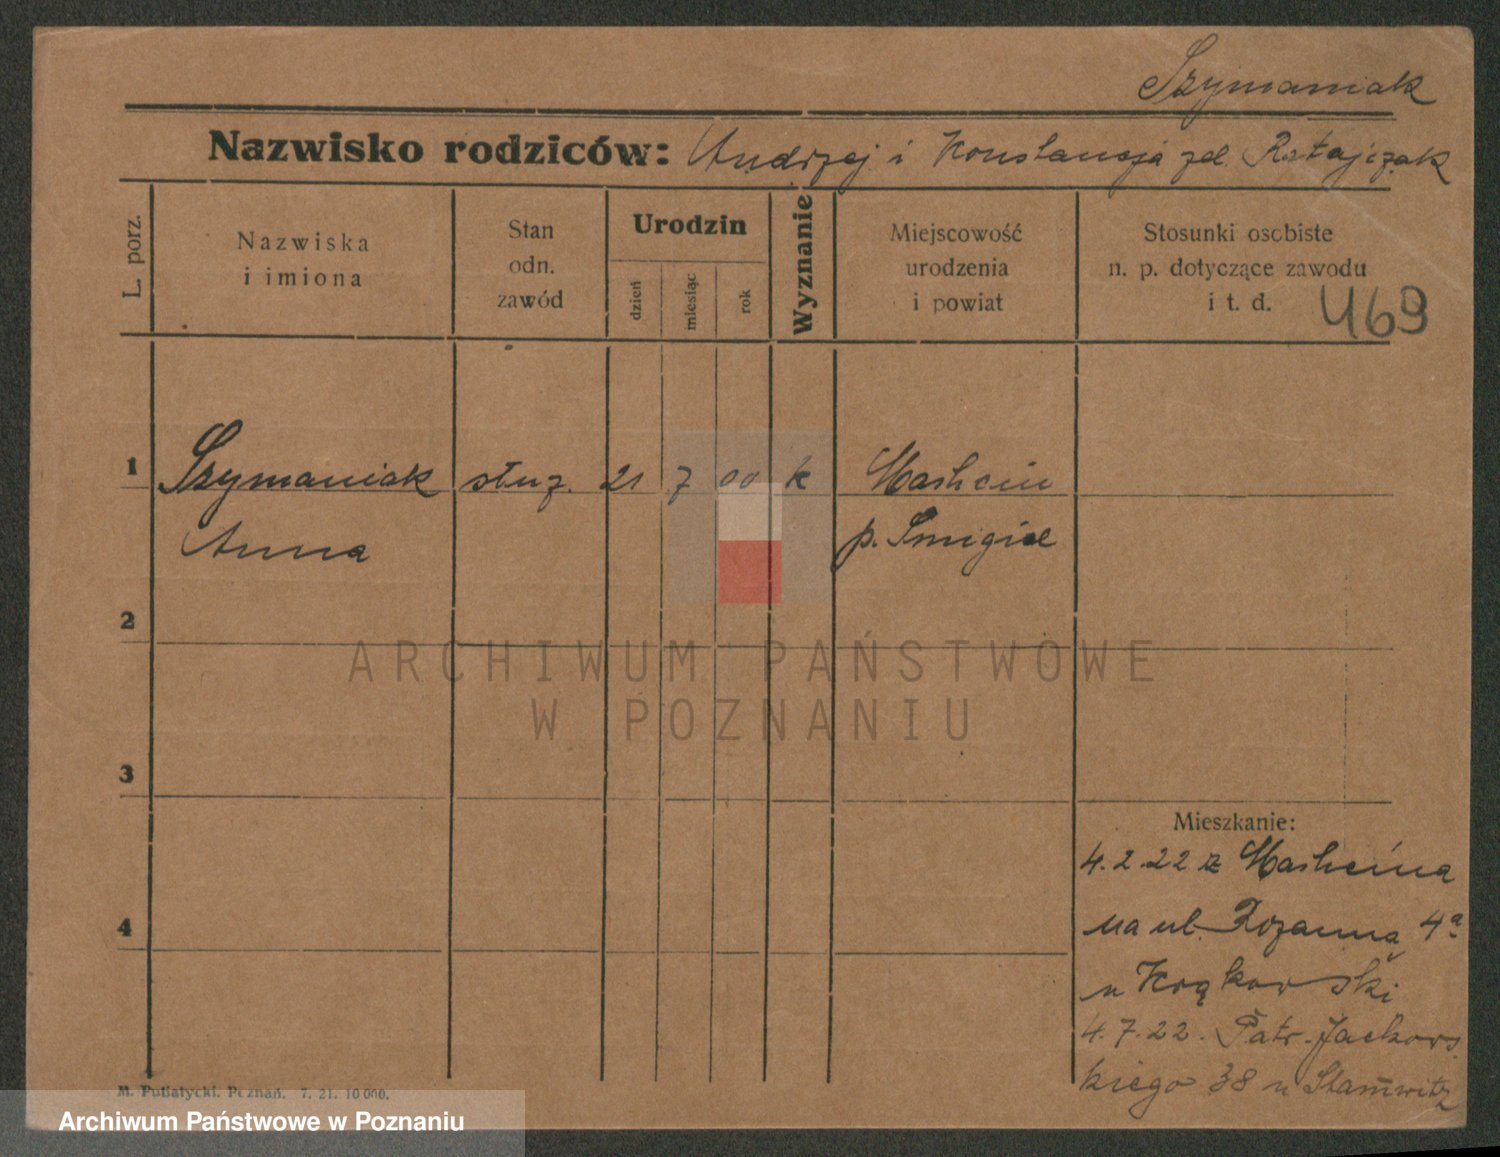 Szymaniak
Nazwisko rodziców: Andrzej i Konstancja zd. Ratajczak
L. porz.
Nazwiska
i imiona
Stan
odn.
zawód
Urodzin
dzień
miesiąc
rok
Wyznanie
Miejscowość
urodzenia
i powiat
Stosunki osobiste
n. p. dotyczące zawodu
i t. d.
469
1 Szymaniak służ. 21 7 00 k
Anna p. Śmigiel
2
3
4
Mieszkanie:
4.2.22 z
na ul. Różanną 4a
u Krąkowski
4.7.22. Patr. Jackows
kiego 38 u
M. Putiatycki. Poznań. 7. 21. 10 000.
ARCHIWUM PAŃSTWOWE
W POZNANIU
Archiwum Państwowe w Poznaniu